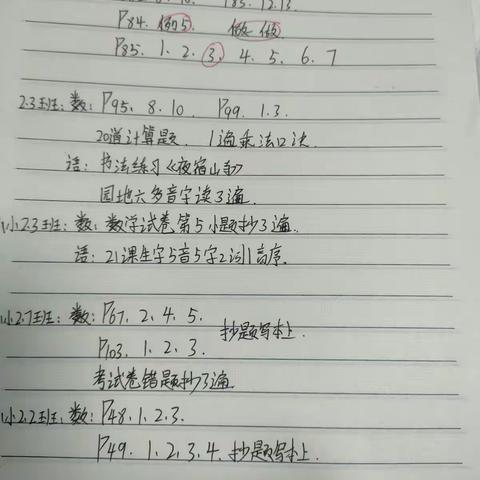 P83. 12.13.
P84. 例5 做一做
P85. 1. 2. 3. 4. 5. 6. 7
2.3班: 数: P95. 8. 10. P99. 1. 3.
20道计算题. 1遍乘法口决.
语: 书法练习《夜宿山寺》
园地六多音字读3遍.
小2.3班: 数: 数学试卷第5小题抄3遍.
语: 21课生字5音5字2词1高序.
小2.7班: 数: P67. 2. 4. 5.
抄题写本上.
P103. 1. 2. 3.
考试卷错题抄3遍
小2.2班: 数: P48. 1. 2. 3.
P49. 1. 2. 3. 4. 抄题写本上.